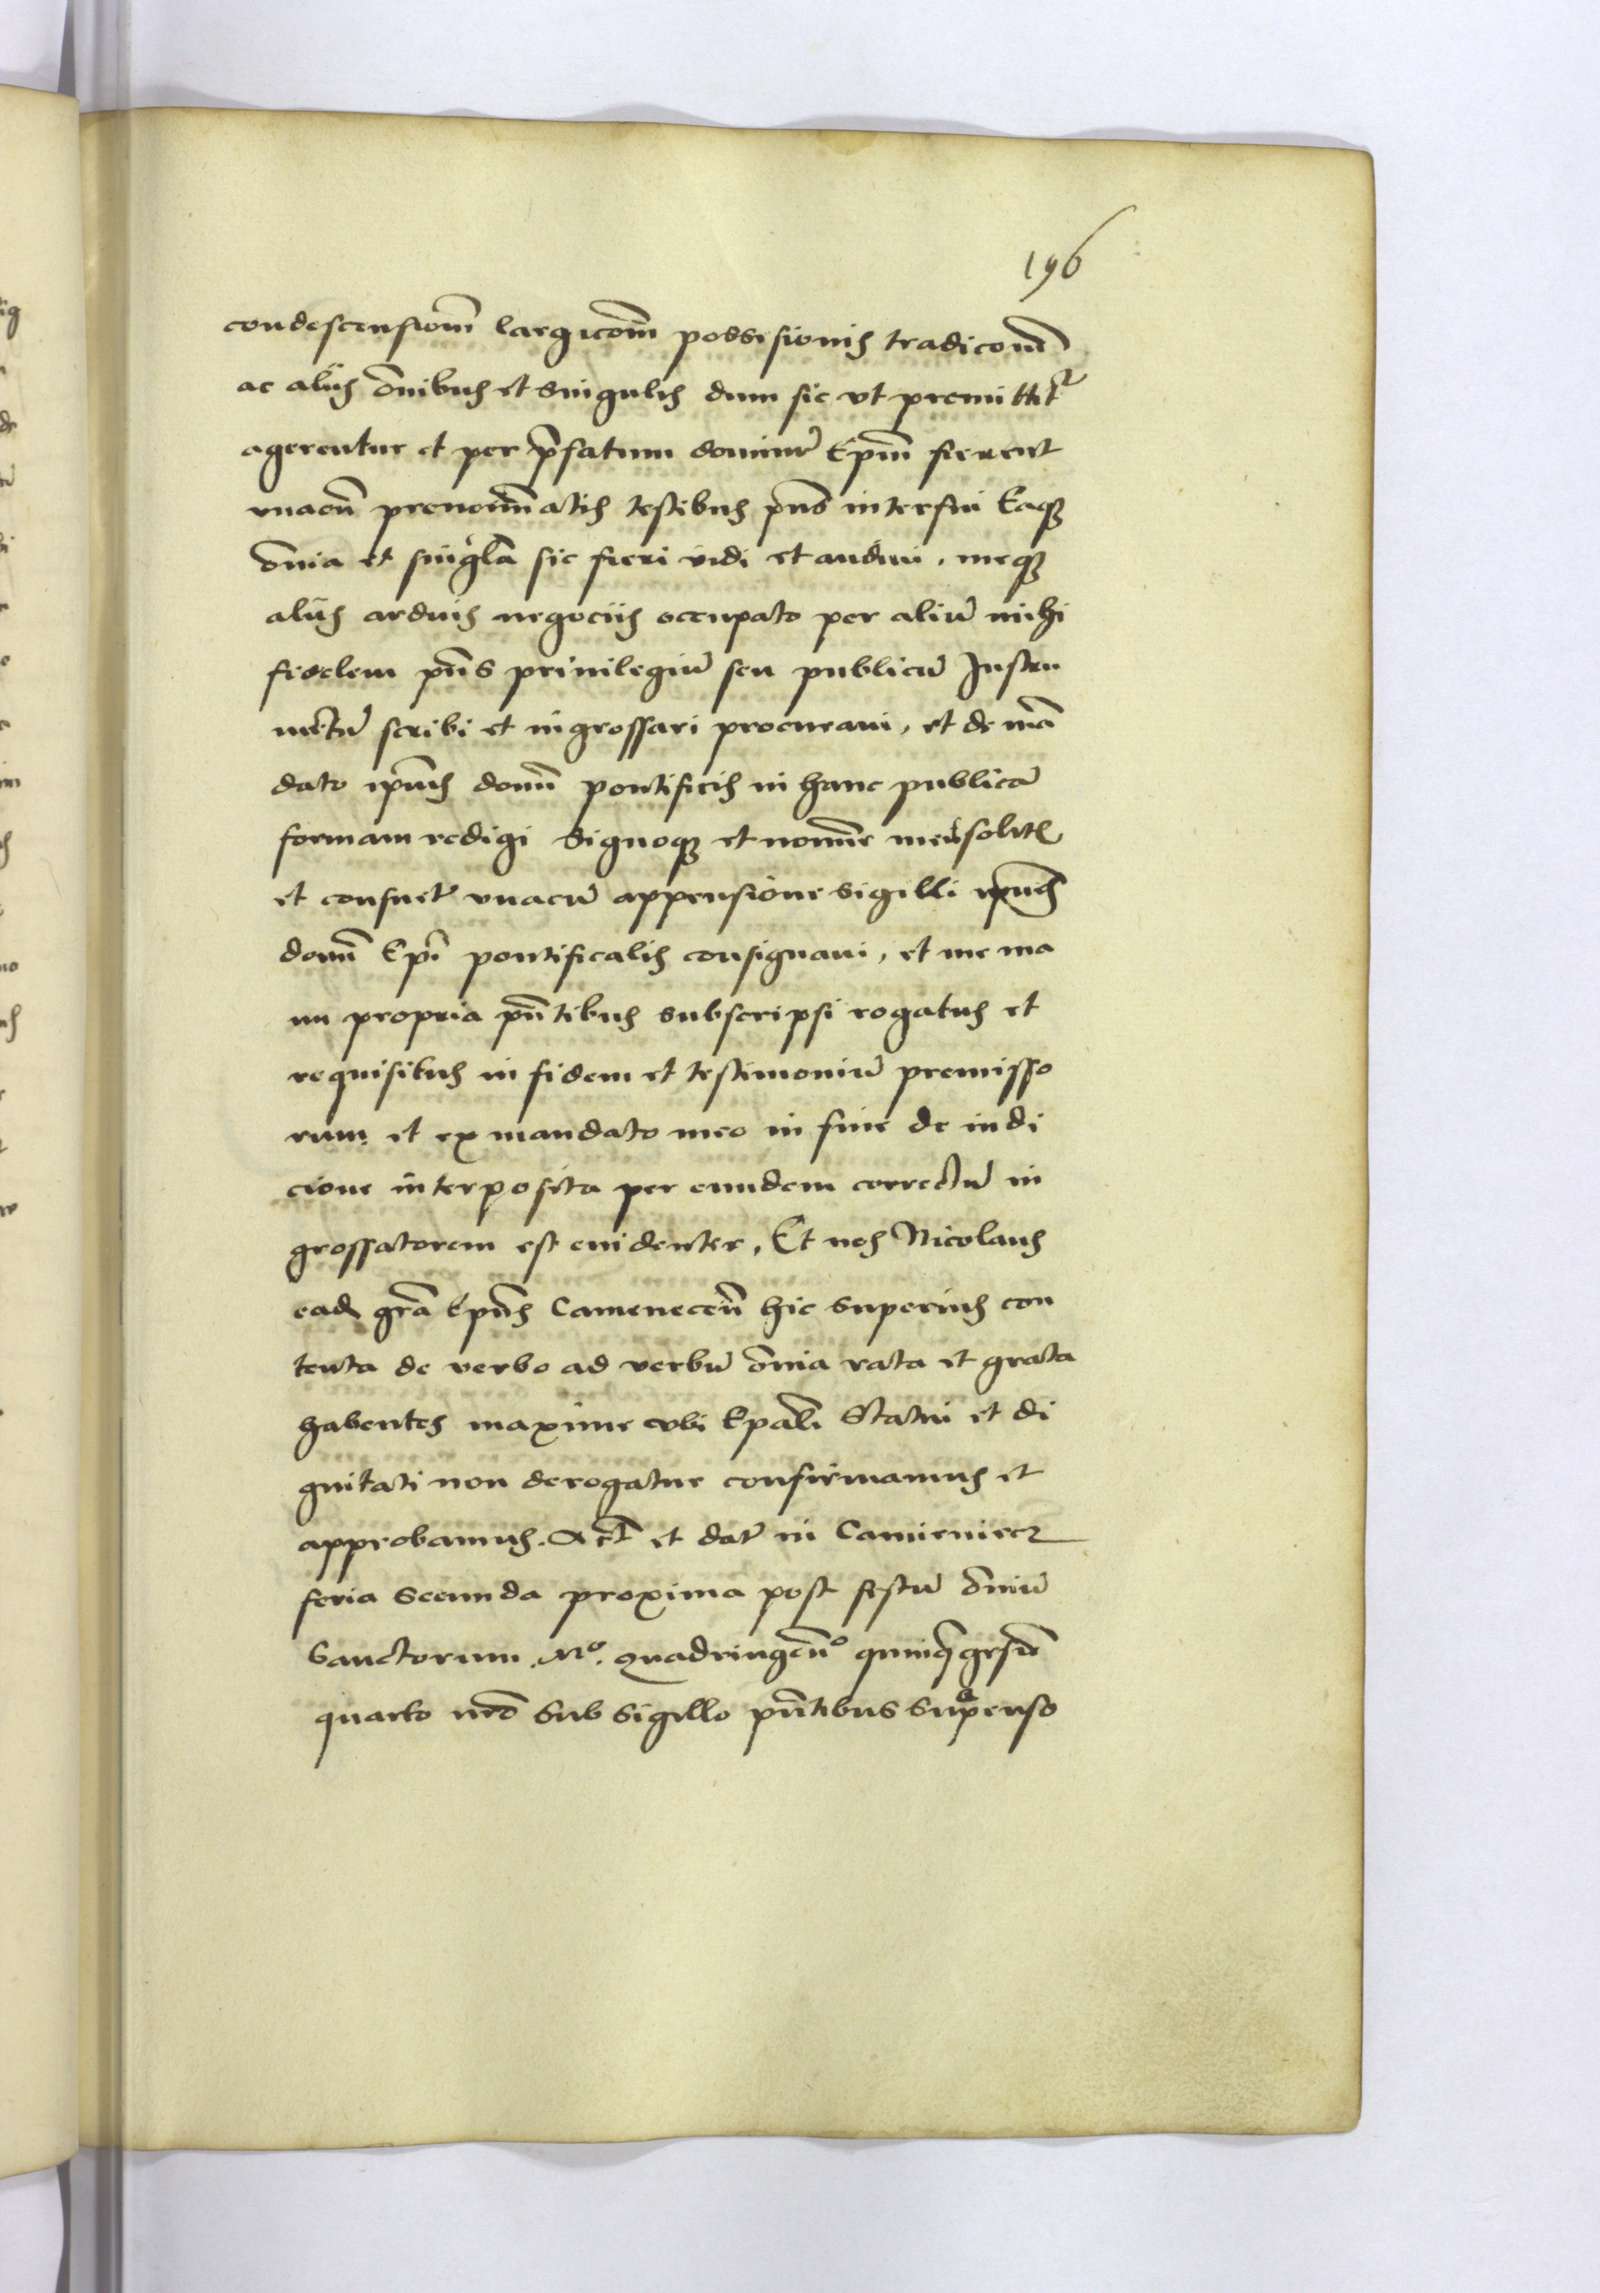 196
condescensionē largicōnē possessionis tradiconē
ac aliis om̄ibus et singulis dum sic vt premittitr
agerentur et per p̄fatum dominū Ep̄m fierent
vnacū prenoīnatis testibus p̄ns interfui Eaq3
om̄ia et singl̄a sic fieri vidi et audiui, meq3
aliis arduis negociis occupato per aliū mihi
fidelem p̄ns priuilegiū seu publicū Instru
mētū scribi et ingrossari procuraui, et de mā
dato ip̄ius domī pontificis in hanc publicā
formam redigi signoq3 et noīe meis solitis
et consuet vnacū appensione sigilli ip̄ius
domī Ep̄i pontificalis consignaui, et me ma
nu propria p̄ntibus subscripsi rogatus et
requisitus in fidem et testimoniū premisso
rum et ex mandato meo in fine de indi
cione interposita per eundem correctū in
grossatorem est euidenter, Et nos Nicolaus
ead gr̄a Ep̄us Camenecen̄ hic superius con
tenta de verbo ad verbū om̄ia rata et grata
habentes maxime vbi Ep̄ali Statui et di
gnitati non derogatur confirmamus et
approbamus. Act̄ et dat̄ in Camieniecz
feria secunda proxima post festū om̄iū
Sanctorum Mo. quadringēno quinq̄gesīo
quarto nr̄o Sub Sigillo p̄ntibus Supenso